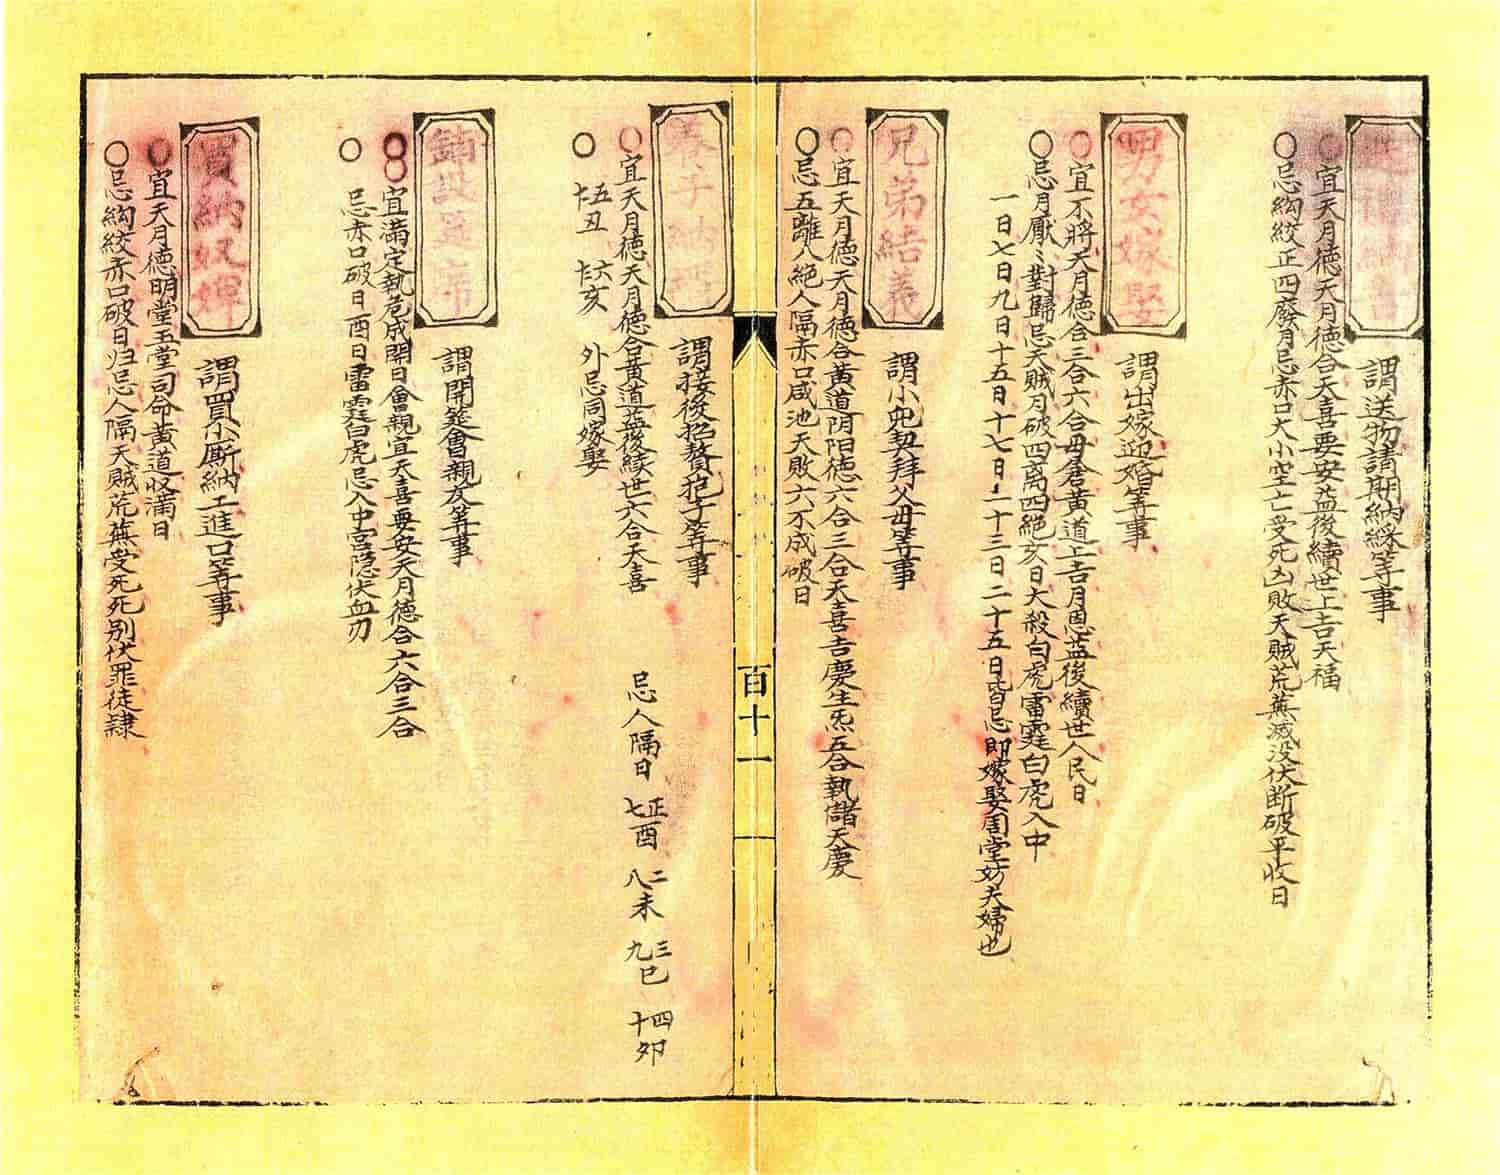 謂送物請期納綵等事
宜天月德天月德合天喜要安益後續世上吉天福
忌絇絞正四廢月忌赤口大小空亡受死凶敗天賊荒蕪滅没伏断破平收日
男女嫁娶
謂出嫁迎婚等事
宜不將天月德合三合六合母倉黄道上吉月恩益後續世人民日
忌月厭〻對歸忌天贼月破四离四絕亥日大殺白虎雷霆白虎入中
一日七日九日十五日十七日二十三日二十五日皆忌即嫁娶周堂妨夫婦也
兄弟結義
謂小兜契拜父母等事
宜天月德天月德合黄道阴阳德六合三合天喜吉慶生炁五合執儲天慶
忌五離八絕人隔赤口咸池天敗六不成破日
百十一
養子納婿
謂接後招贅抱子等事
宜天月德天月德合黃道益後續世六合天喜
忌人隔日 正七酉 二八未 三九巳 四十夘
五十一丑 六十二亥 外忌同嫁娶
鋪設筵席
謂開筵會親友等事
宜滿定執危成開日會親宜天喜要安天月德合六合三合
忌赤口破日酉日雷霆白虎忌入中宮隐伏血刃
買納奴婢
謂買小厮納工進口等事
宜天月德明堂玉堂司命黄道收滿日
忌絇絞赤口破日归忌人隔天贼荒蕪受死死别伏罪徒隷